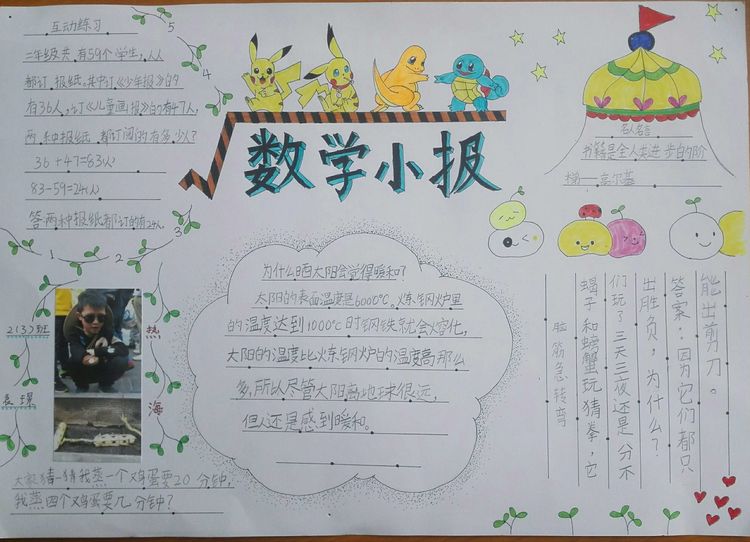 互动练习
二年级共有59个学生,人人
都订报纸。其中订《少年报》的
有36人,订《儿童画报》的有47人,
两种报纸都订阅的有多少人?
36+47=83(人)
83-59=24(人)
答两种报纸都订的有24人。
1
2
3
4
5
数学小报
名人名言
书籍是全人类进步的阶
梯——高尔基
为什么晒太阳会觉得暖和?
太阳的表面温度是6000°C。炼钢炉里
的温度达到1000°C时钢铁就会熔化,
太阳的温度比炼钢炉的温度高那么
多,所以尽管太阳离地球很远,
但人还是感到暖和。
脑筋急转弯
蝎子和螃蟹玩猜拳,它
们玩了三天三夜还是一分不
出胜负,为什么?
答案:因为它们都只
能出剪刀。
2(3)班
热
海
大家猜一猜我蒸一个鸡蛋要20分钟,
我蒸四个鸡蛋要几分钟?